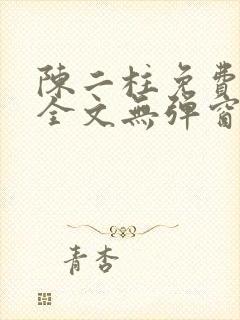 陳二柱免費
全文無彈窗
青杏